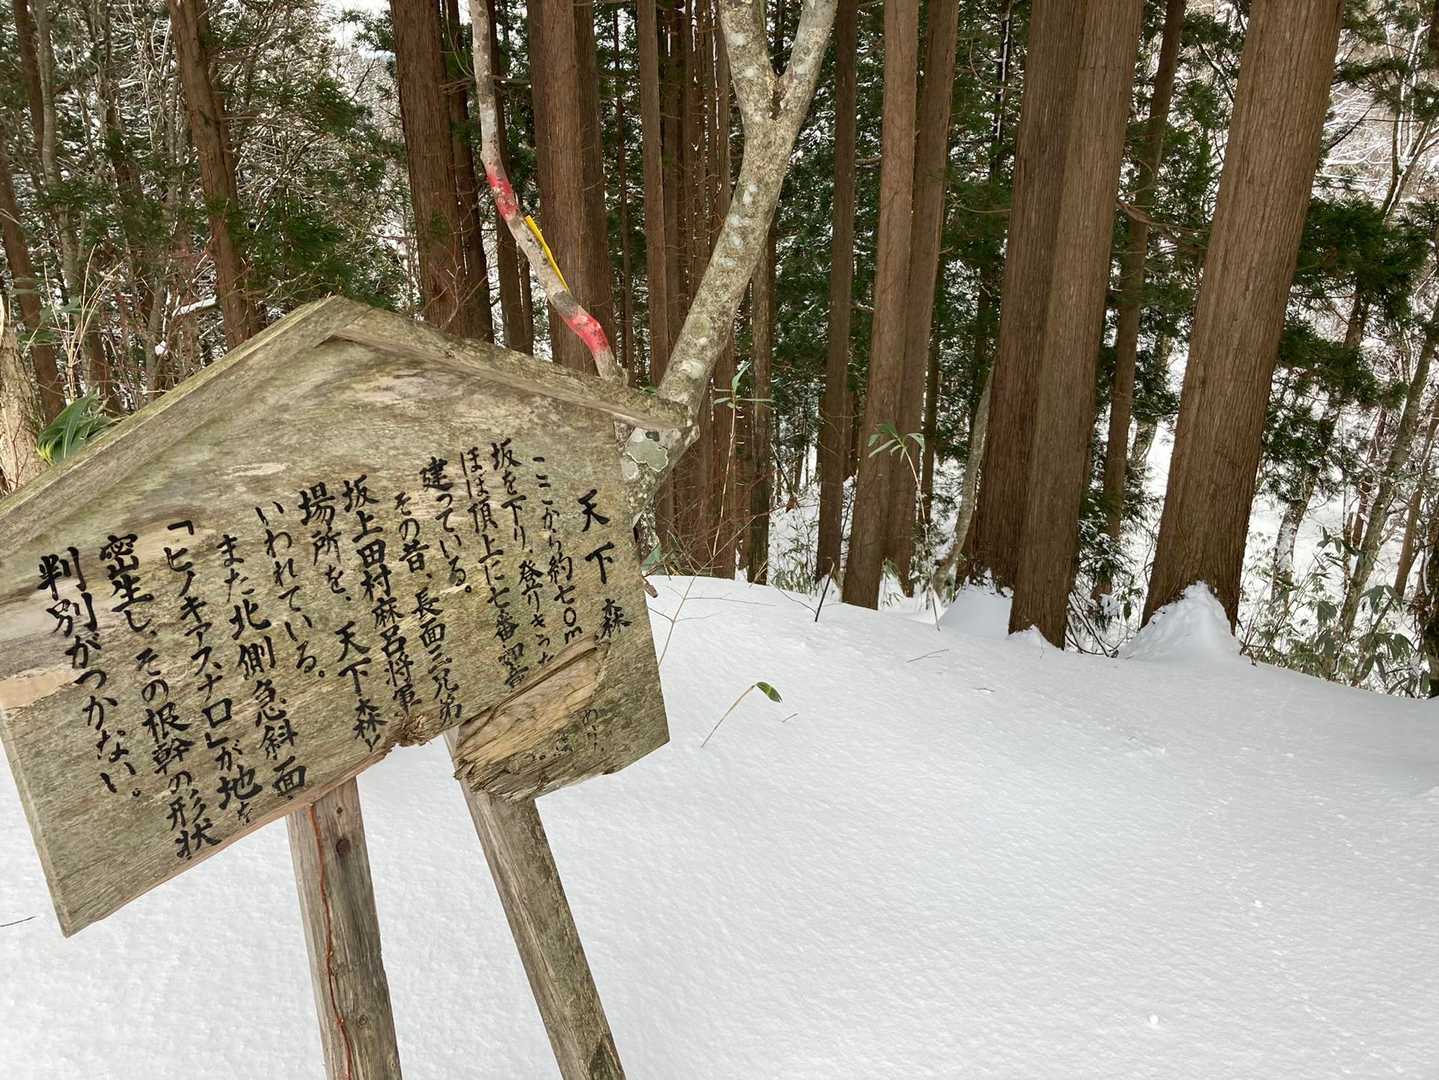 天下森
ここから約七〇m
坂を下り、登りきった
ほぼ頂上に七番観音
建っている。
その昔、長面三兄弟
坂上田村麻呂将軍
場所を、天下森と
いわれている。
また北側急斜面、
「ヒノキアスナロ」が地を
密生し、その根幹の形状
判別がつかない。